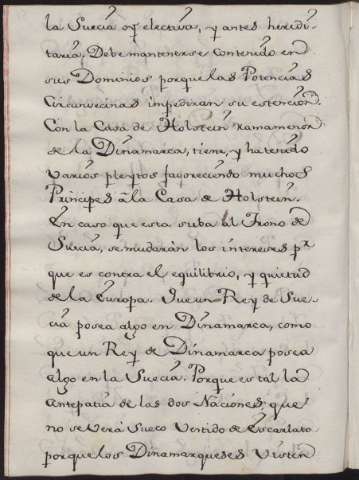 la Suecia oy electiva, y antes heredi-
taria. Debe mantenerse contenido en
sus Dominios porque las Potencias
Circunvecinas impediran su estencion.
Con la Casa de Holstein rama menor
de la Dinamarca, tiene, y ha tenido
varios pleytos favoreciendo muchos
Principes â la Casa de Holstein.
En caso que esta suba al Trono de
Suecia, se mudarán los intereses pr.
que es contra el equilibrio, y quietud
de la Europa. Que un Rey de Sue-
cia posea algo en Dinamarca, como
que un Rey de Dinamarca posea
algo en la Suecia. Porque es tal la
antepatia de las dos Naciones, que
no se verá Sueco vestido de Escarlato
porque los Dinamarqueses visten